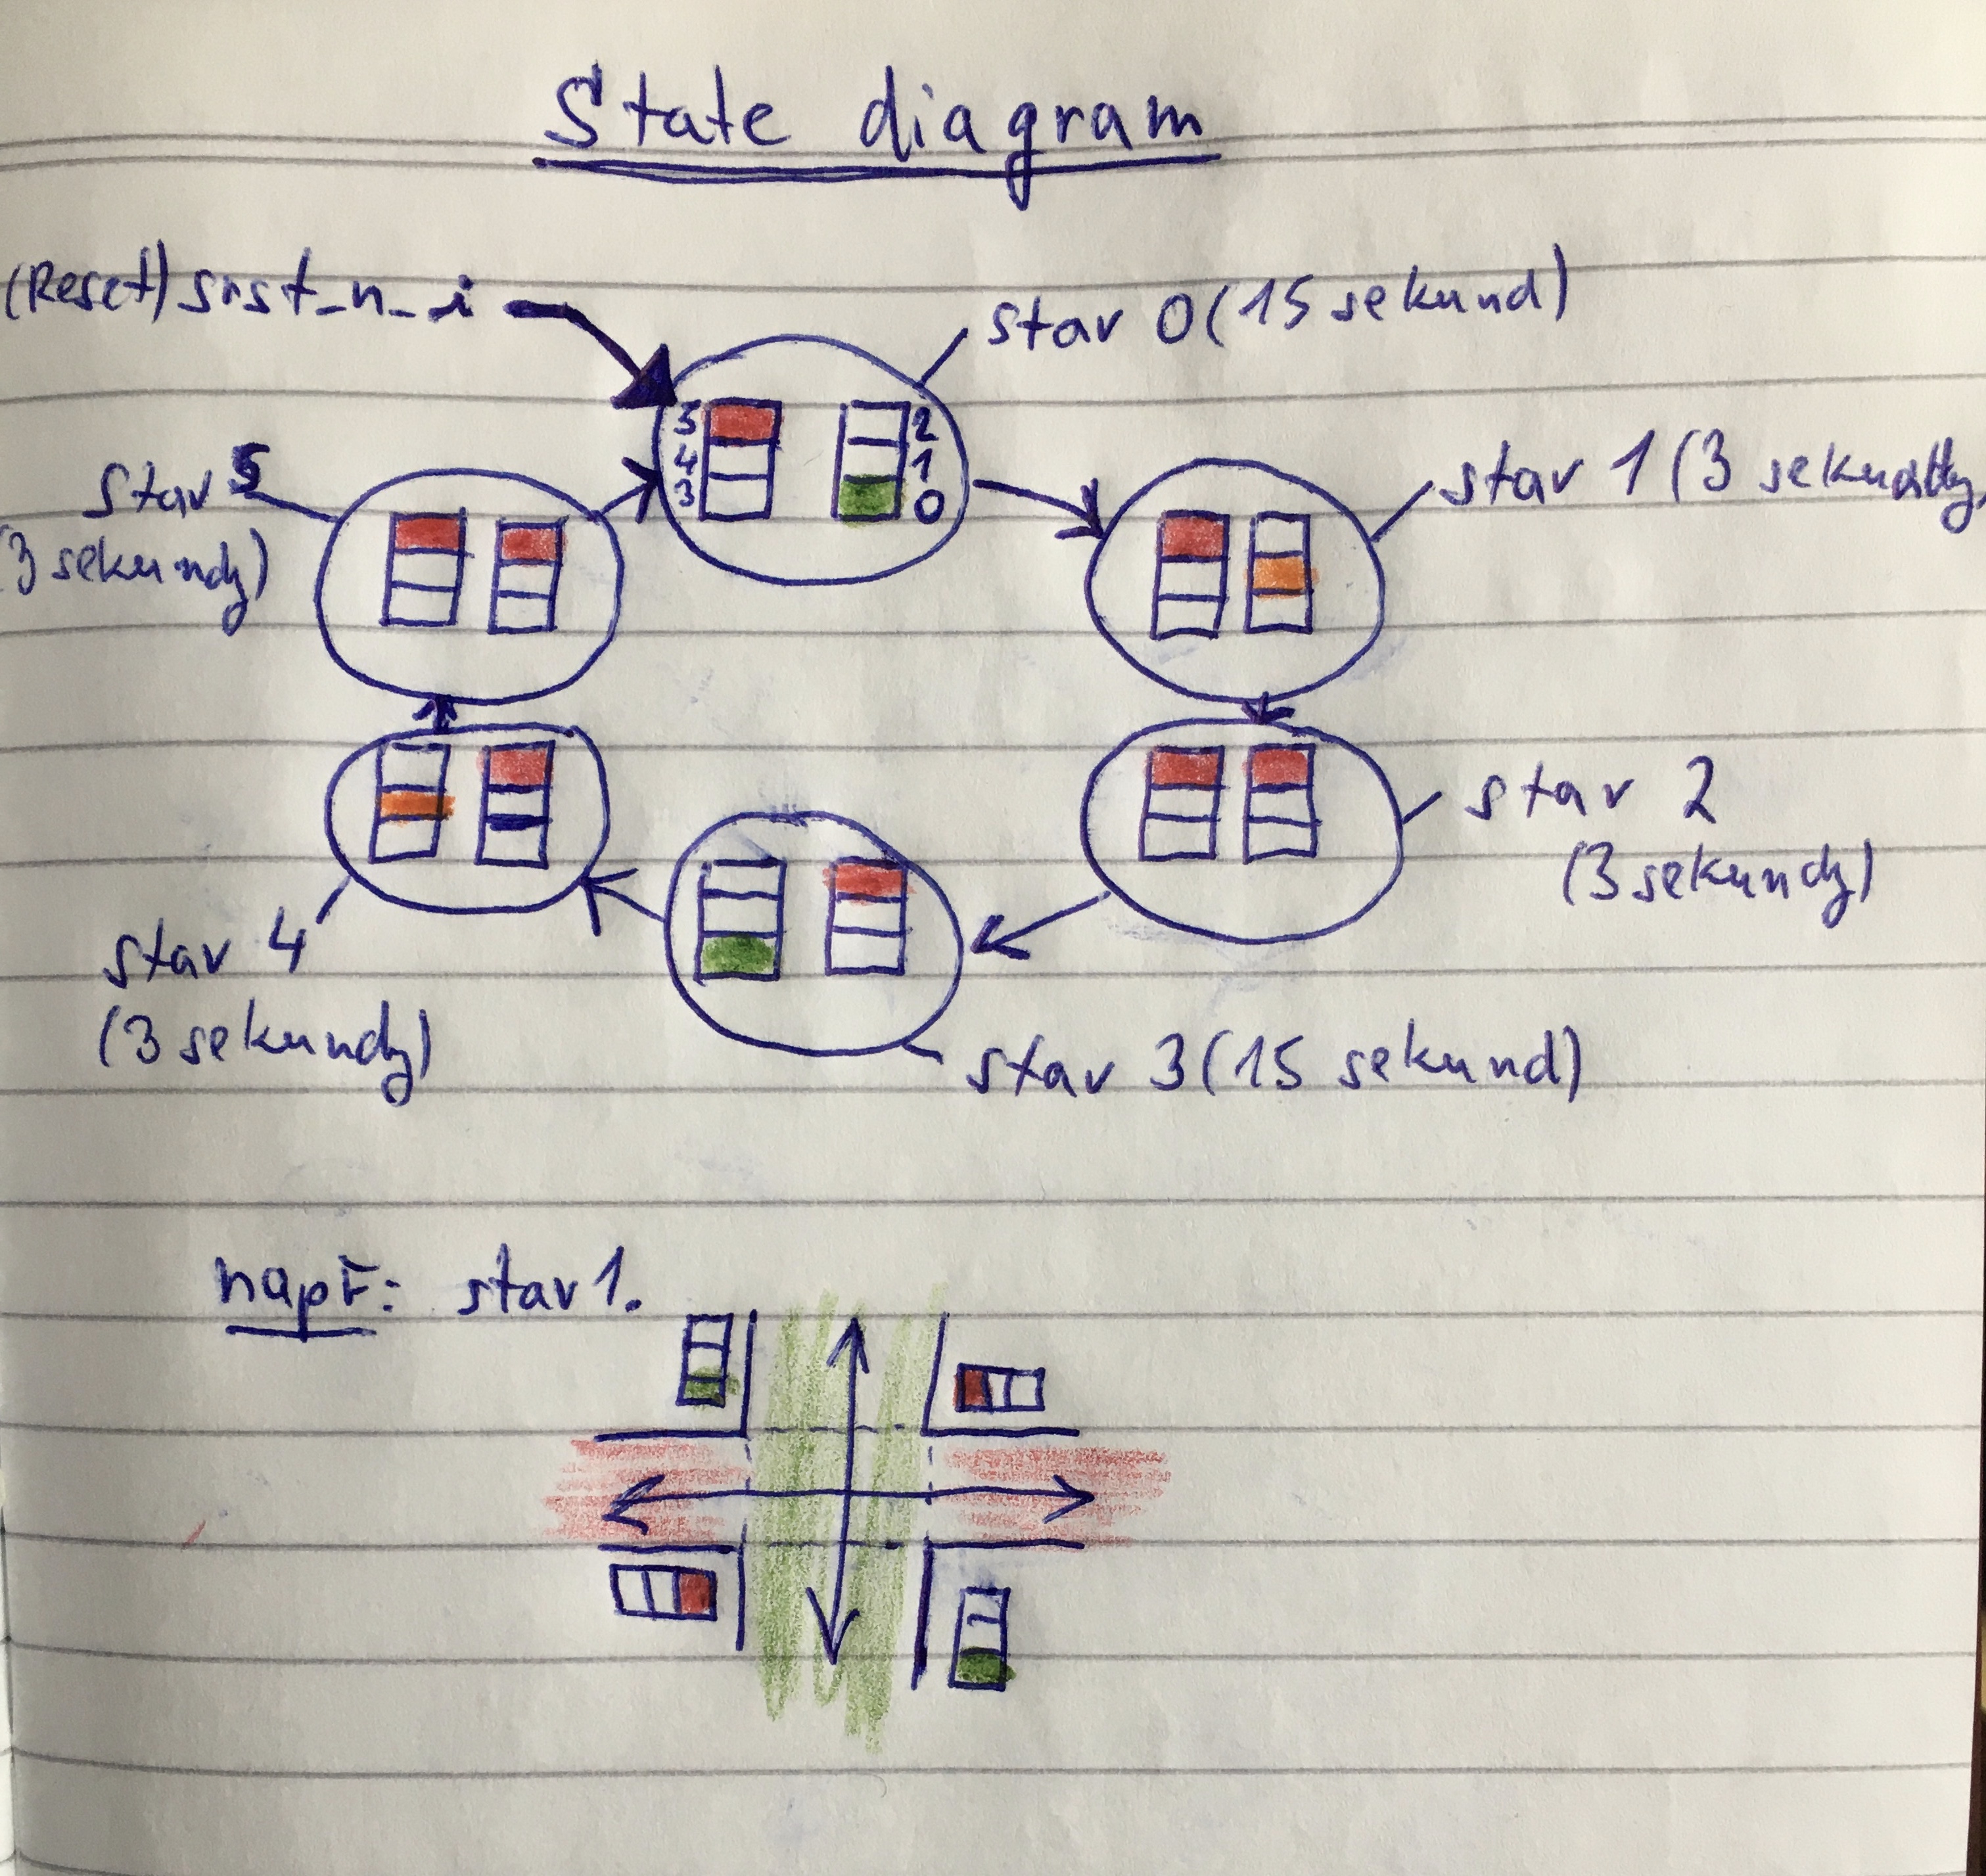 State diagram
(Reset) srst_n_i
stav 0 (15 sekund)
5
4
3
2
1
0
stav 5
(3 sekundy)
stav 1 (3 sekundy)
stav 2
(3 sekundy)
stav 4
(3 sekundy)
stav 3 (15 sekund)
např: stav 1.